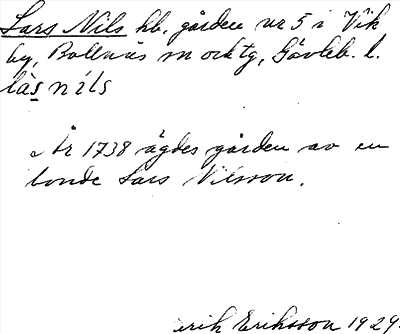 Lars Nils hb. gården nr 5 i Vik
by, Bollnäs sn o ch tg, Gävleb. l.
làs níls
År 1738 ägdes gården av en
bonde Lars Nilsson.
Erik Eriksson 1929.